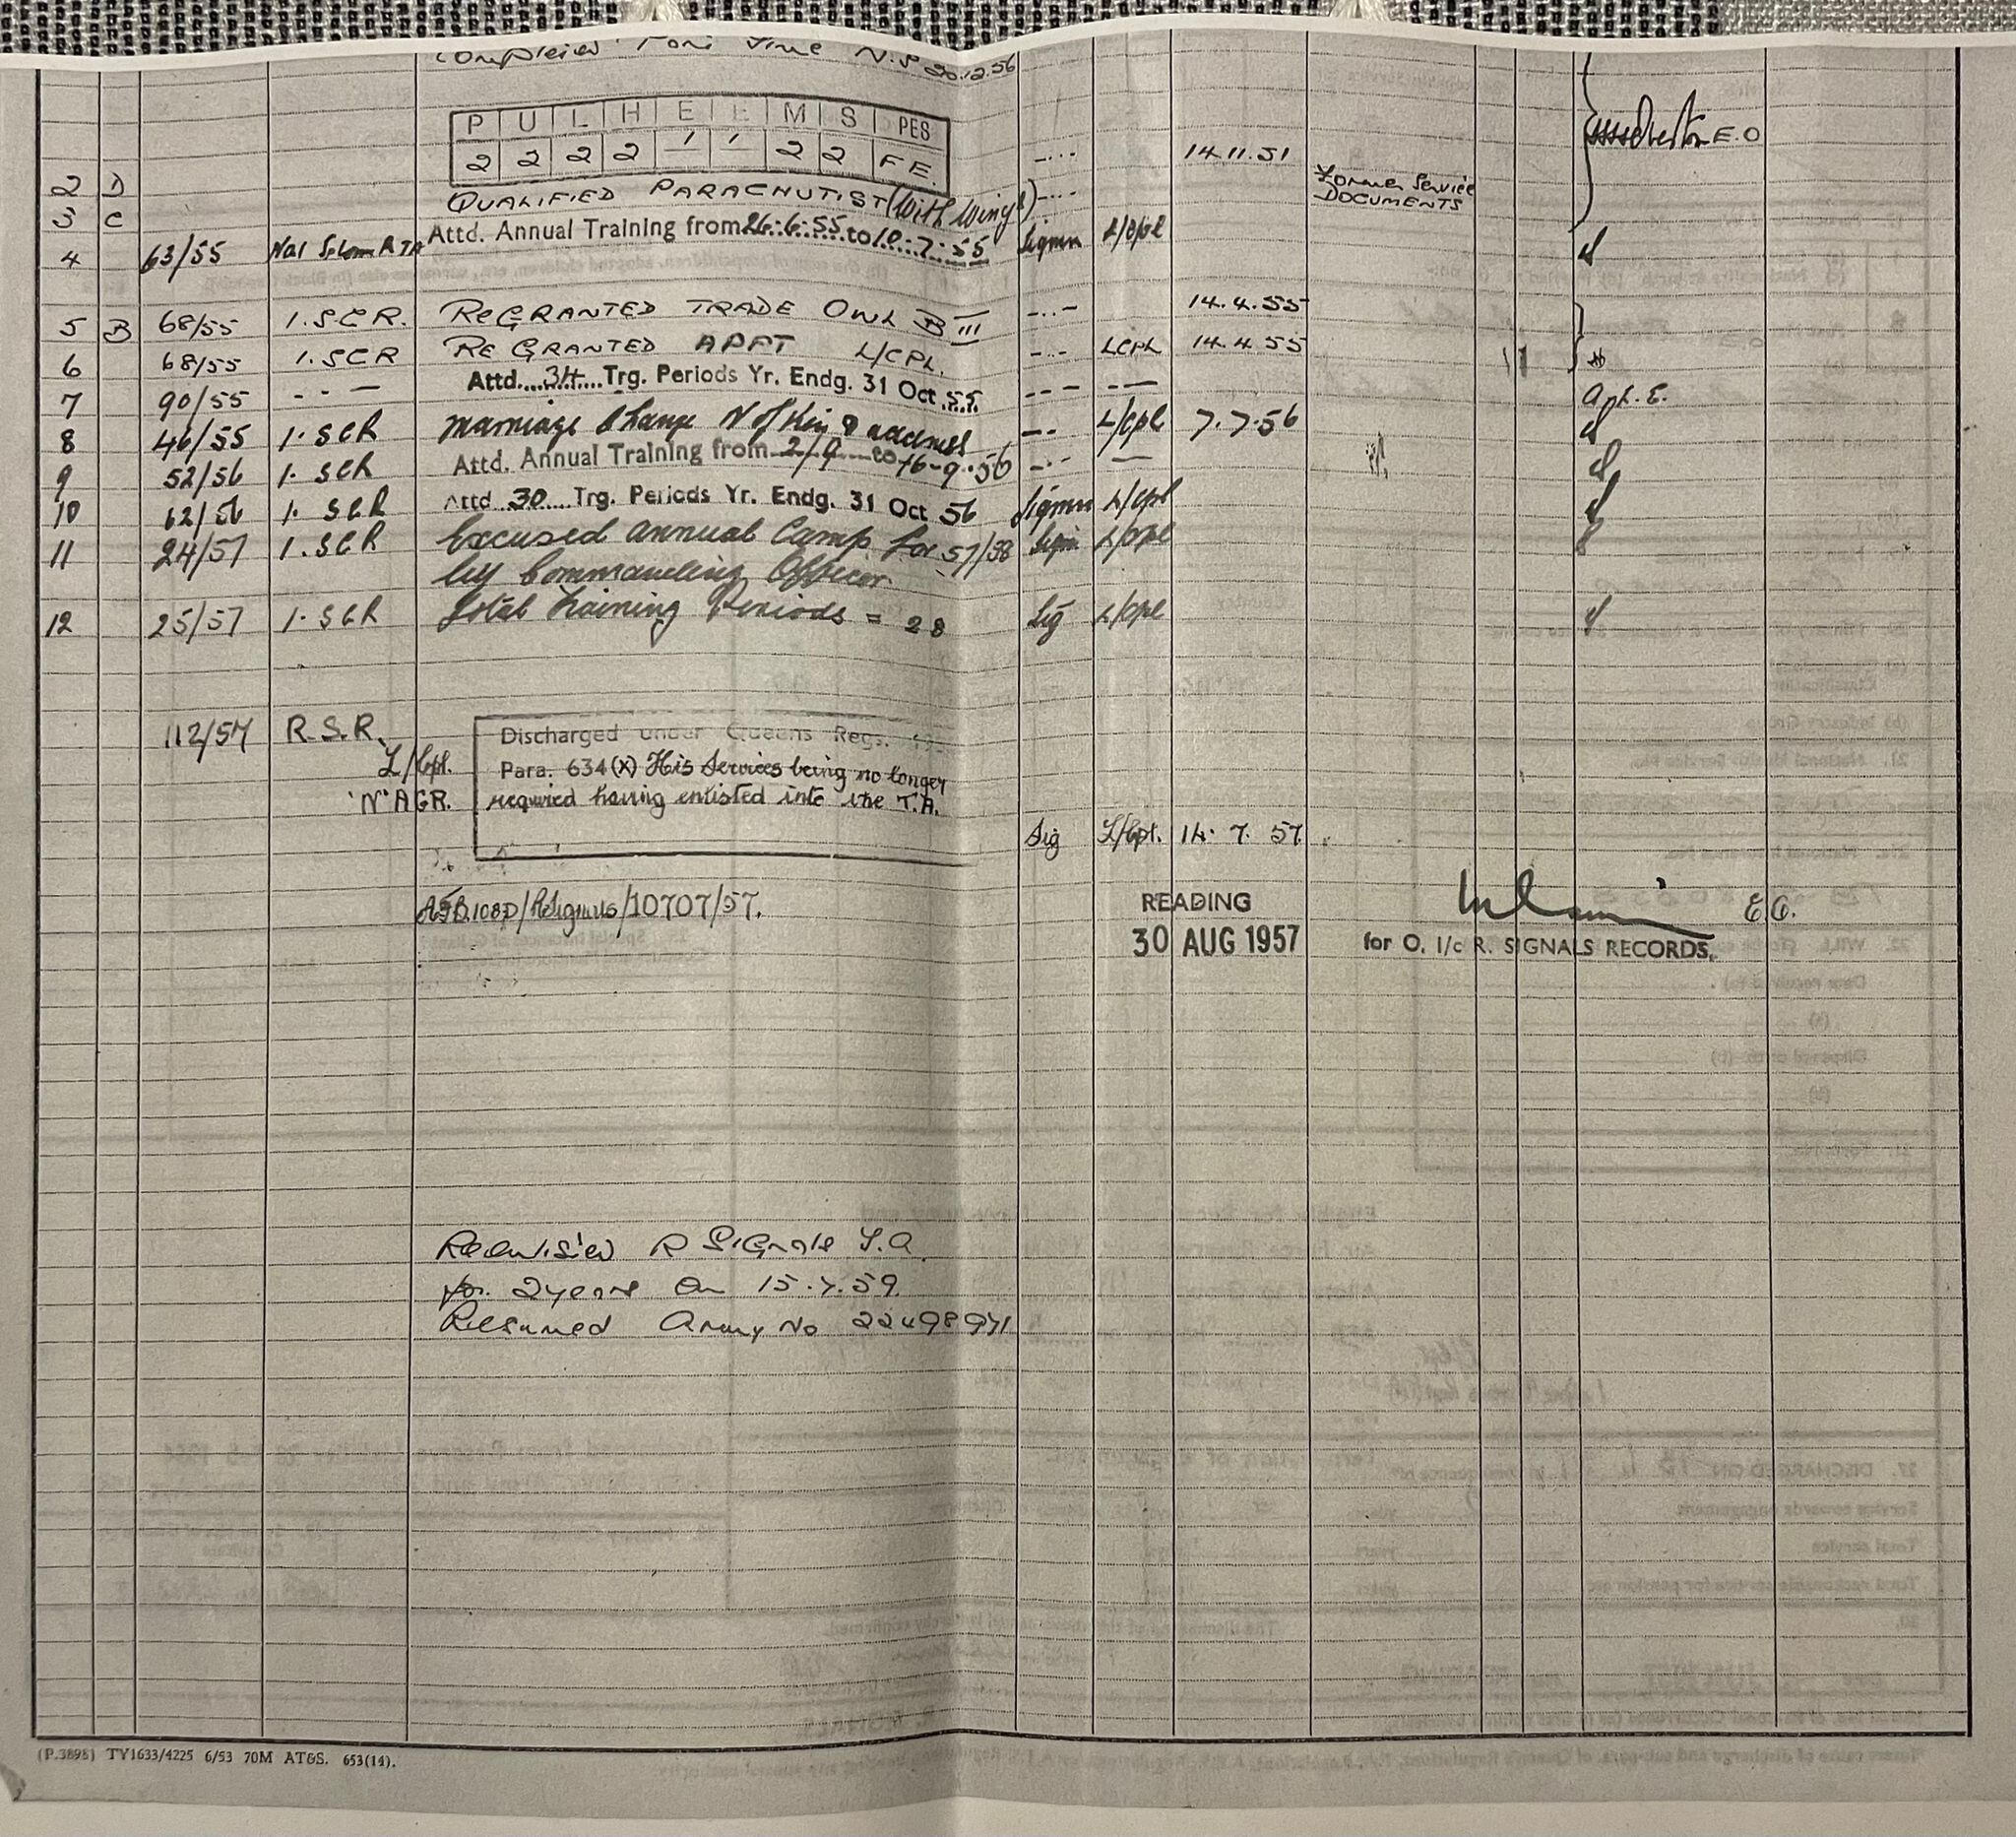 Completed Part Time N.S 20.12.56
P U L H E E M S PES
2 2 2 2 1 1 2 2 FE. -..- 14.11.51 E.O
2 D QUALIFIED PARACHUTIST (With Wings) -..- Former Service
3 C DOCUMENTS
4 63/55 Attd. Annual Training from 26.6.55 to 10.7.55 Sigmn L/Cpl
5 B 68/55 1.SCR. ReGRANTED TRADE OWL B III -..- 14.4.55
6 68/55 1.SCR RE GRANTED APPT L/CPL. -..- LCPL 14.4.55
7 90/55 - - - Attd....34....Trg. Periods Yr. Endg. 31 Oct 55 - - - - -
8 46/55 1.SCR Marriage Change N of Kin & address -..- L/Cpl 7.7.56
9 52/56 1.SCR Attd. Annual Training from 2/9 to 16-9-56 -..- —
10 62/56 1.SCR Attd 30 Trg. Periods Yr. Endg. 31 Oct 56 Sigmn L/Cpl
11 24/57 1.SCR Excused Annual Camp for 57/58 Sigmn L/Cpl
by Commanding Officer
12 25/57 1.SCR Total Training Periods = 28 Sig L/Cpl
112/57 R.S.R. Discharged under Queens Regs. 19
L/Cpl. Para. 634(X) His Services being no longer
'N' AGR. required having enlisted into the T.A.
Sig L/Cpl. 14. 7. 57
/R Signals/10707/57.
READING
30 AUG 1957
E.O.
for O. I/c R. SIGNALS RECORDS.
R Signals T.A.
for 2 years on 15.7.59.
Resumed Army No 22498971
(P.3895) TY1633/4225 6/53 70M AT&S. 653(14).